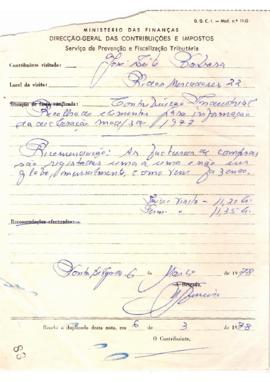 D. G. C. I. - Mod. n.º 11-G
MINISTÉRIO DAS FINANÇAS
DIRECÇÃO-GERAL DAS CONTRIBUIÇÕES E IMPOSTOS
Serviço de Prevenção e Fiscalização Tributária
Contribuinte visitado: José Barbosa
Local da visita: 22
Situação de facto verificada: Contribuição Industrial
Recolha de elementos para informação
da declaração 1977
Recomendação: As facturas de compras
são registadas uma a uma e não em
globo, mensalmente, como vem fazendo.
11,20
11,35
Recomendações efectuadas:
Ponta Delgada 6 de Março de 1978
Recebi o duplicado desta nota, em 6 3 1978
O Contribuinte,
83